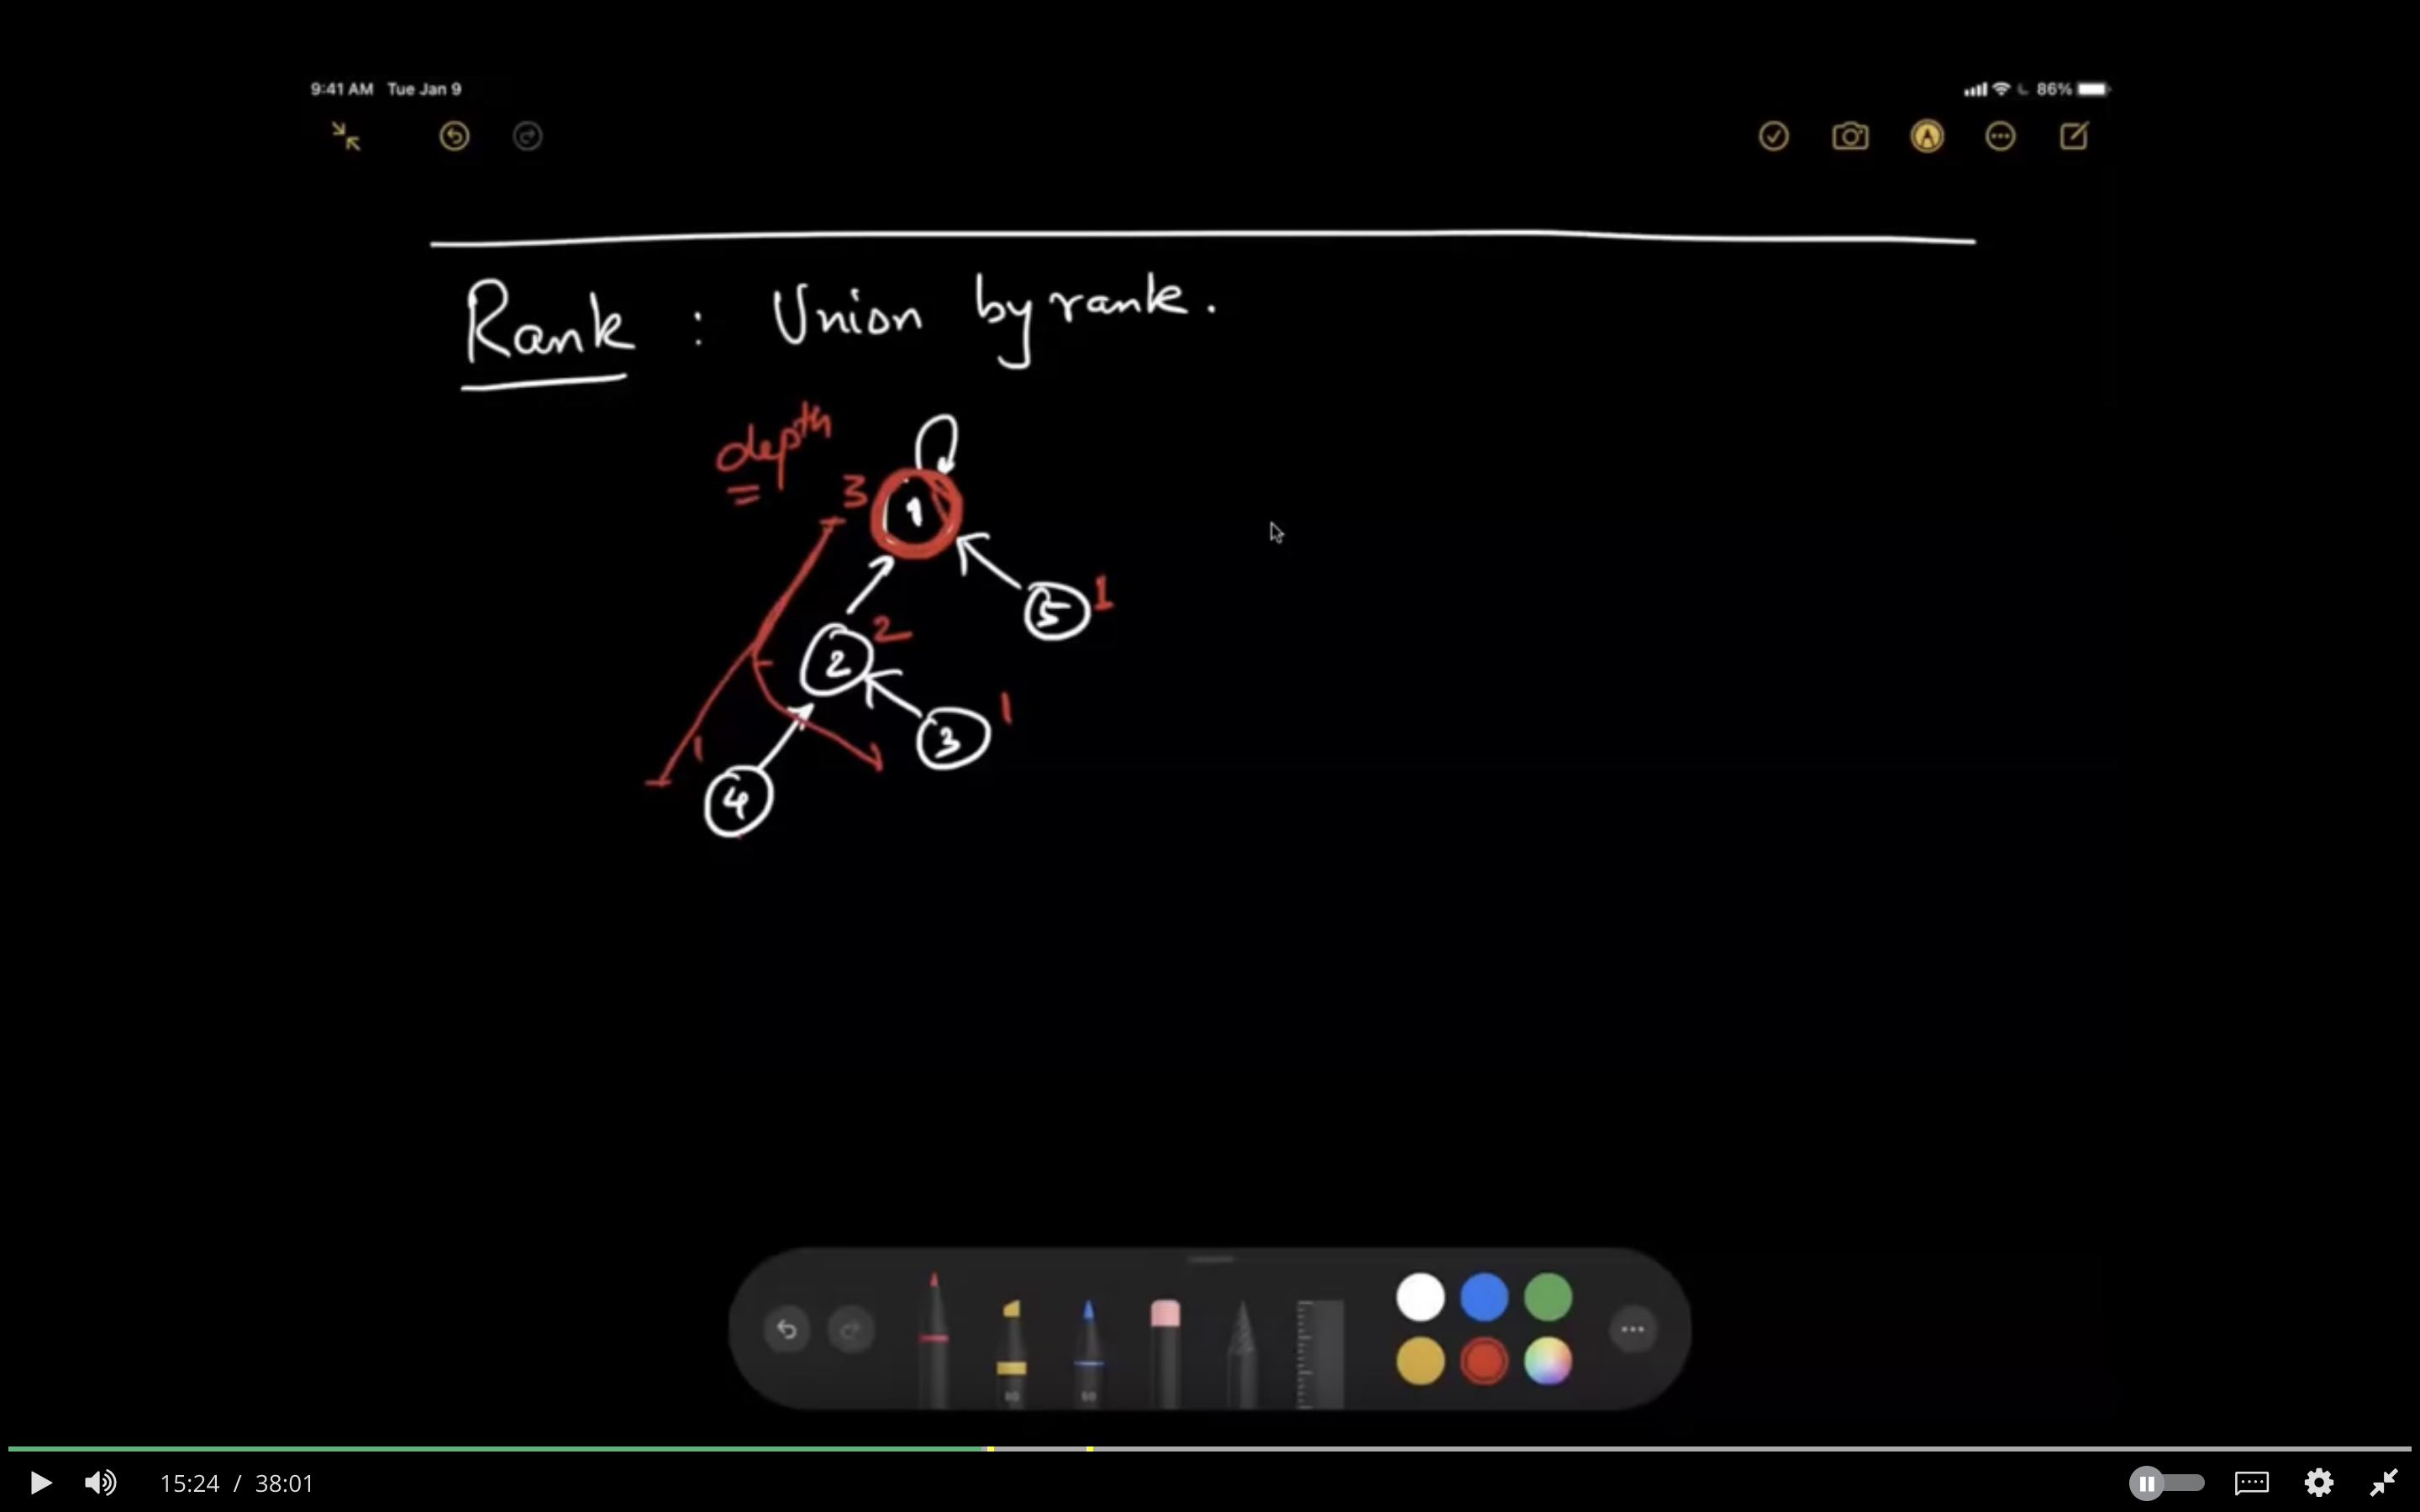 9:41 AM Tue Jan 9
86%
Rank : Union by rank.
depth
3
1
5 1
2 2
3 1
1
4
80
15:24 / 38:01